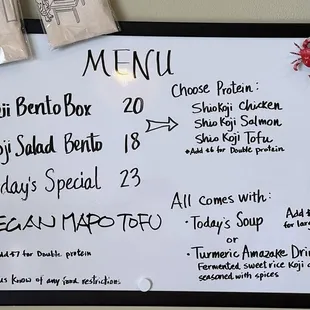 MENU
ji Bento Box 20
ji Salad Bento 18
day's Special 23
EGAN MAPO TOFU
Add $7 for Double protein
us know of any food restrictions
Choose Protein:
Shio Koji Chicken
Shio Koji Salmon
Shio Koji Tofu
*Add $6 for Double protein
All comes with:
• Today's Soup
or
• Turmeric Amazake Drin
Fermented sweet rice Koji
seasoned with spices
Add $
for larg